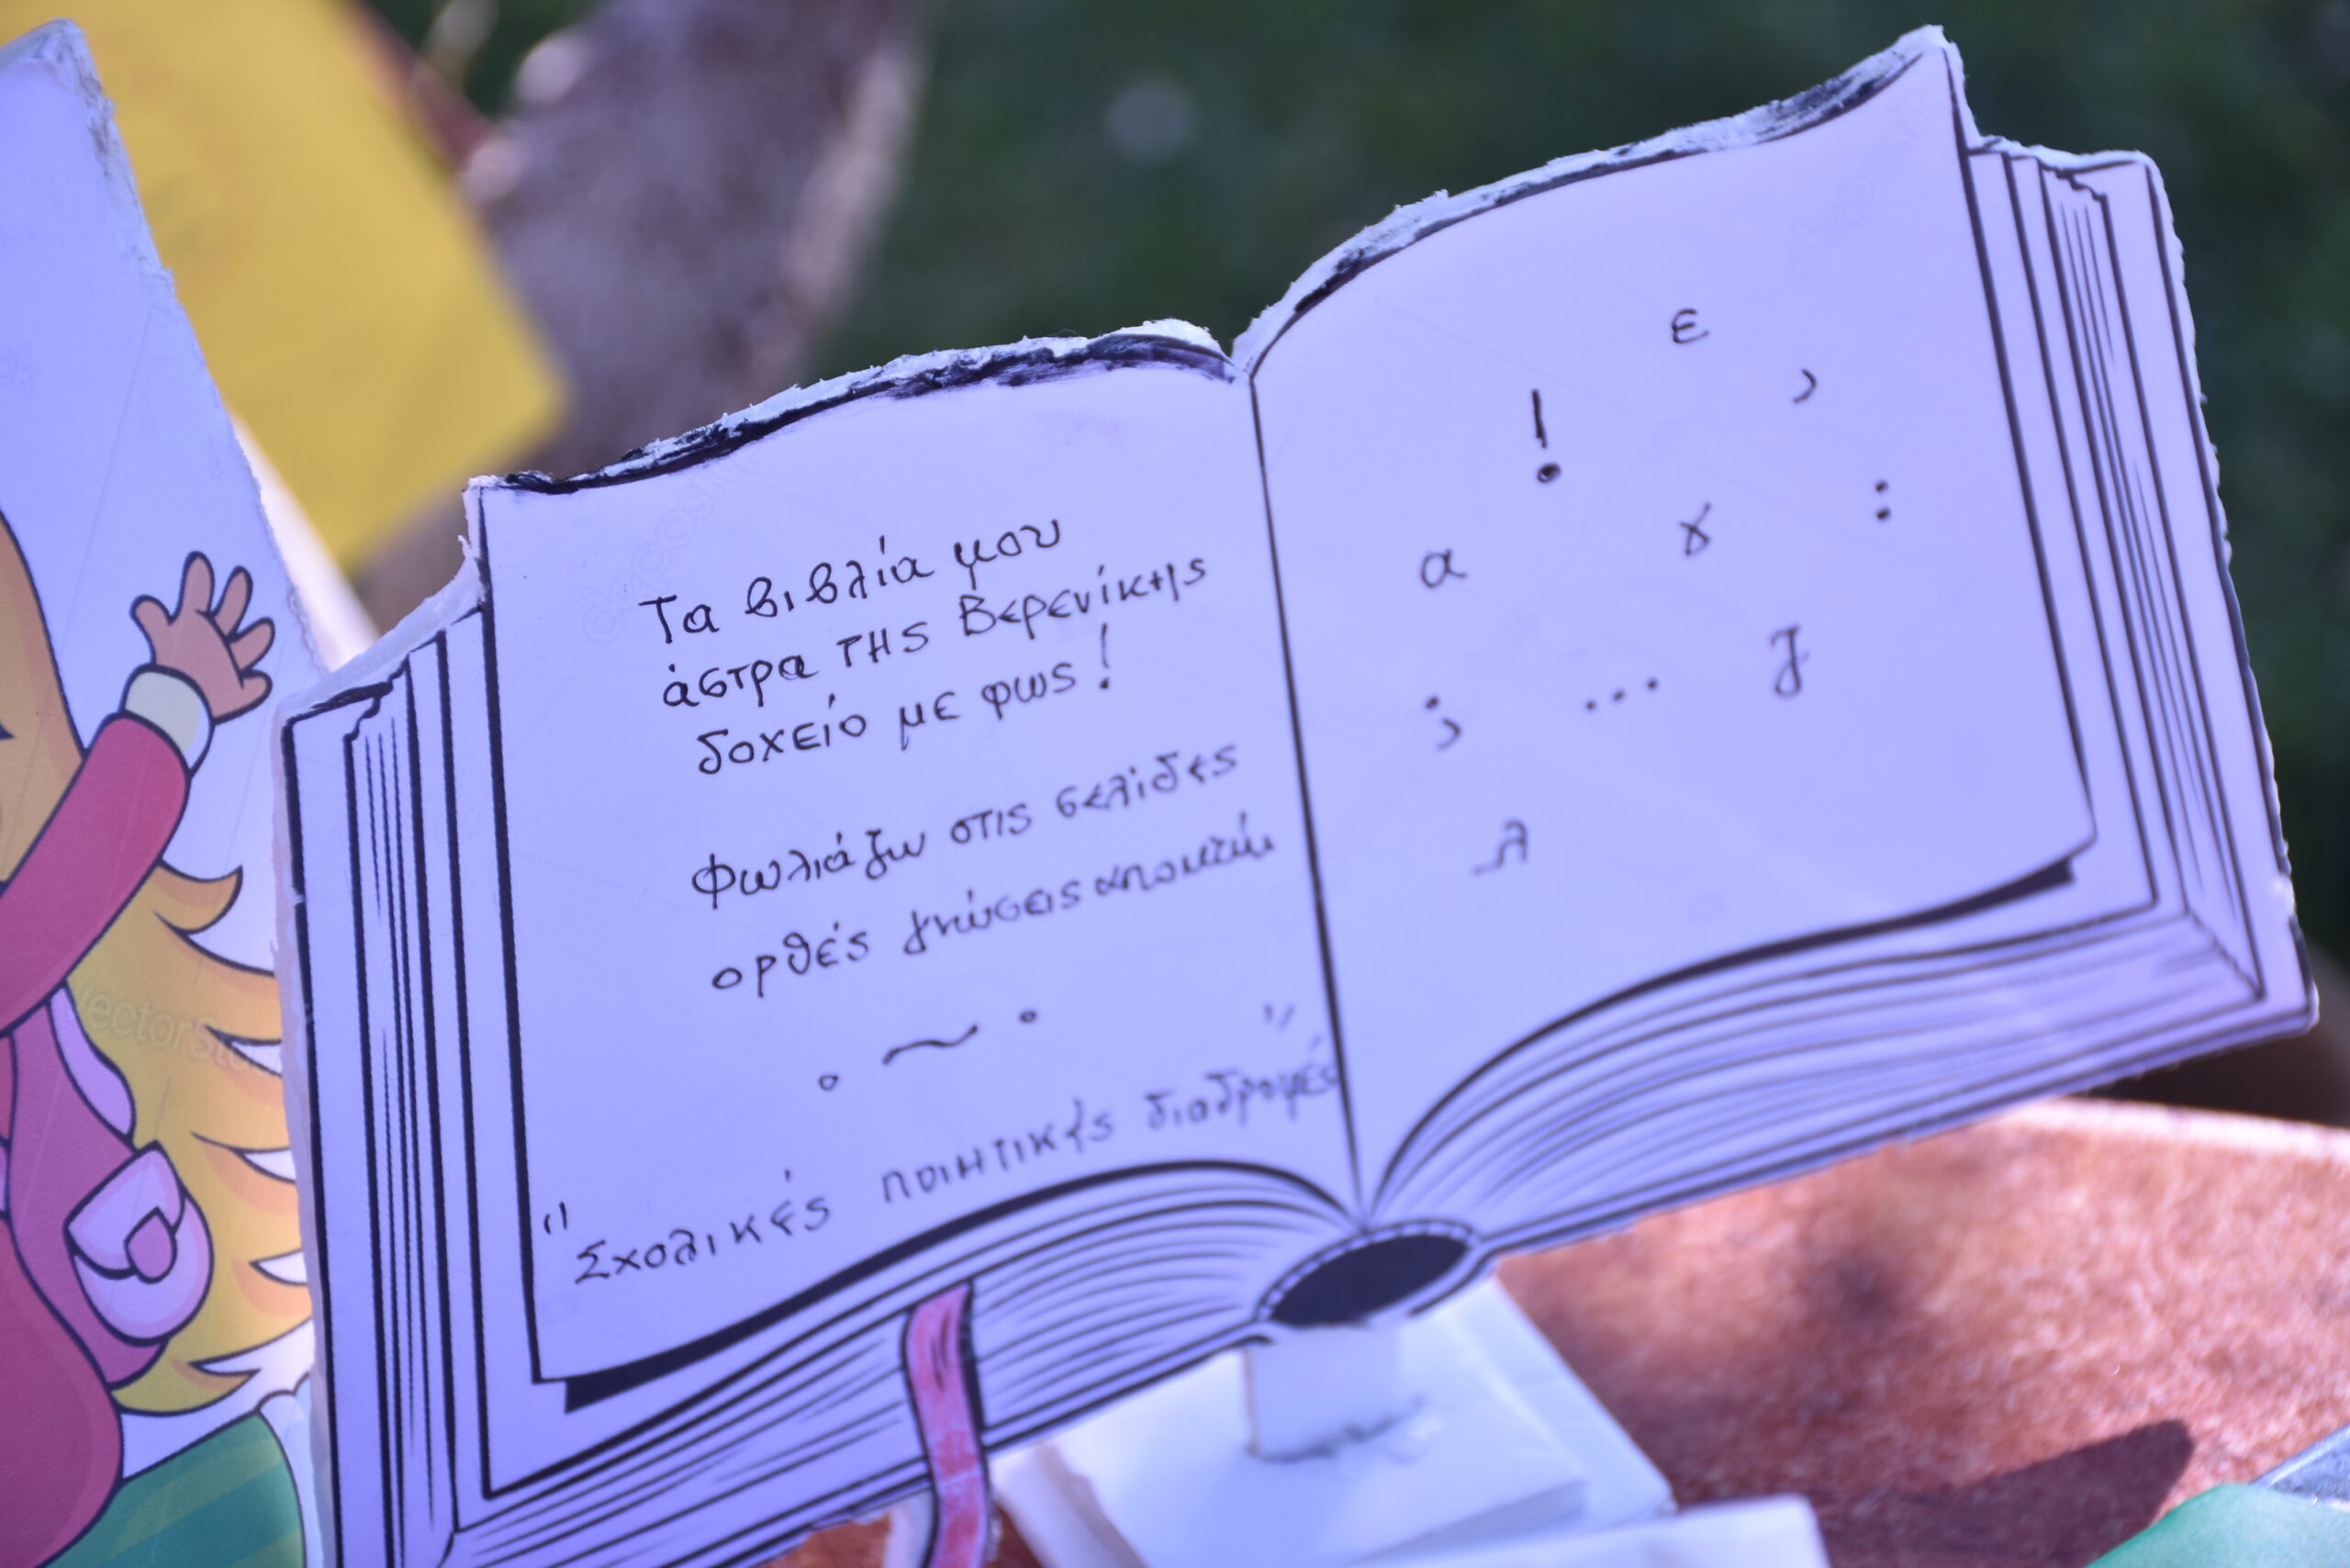 Τα βιβλία μου
άστρα της Βερενίκης
δοχείο με φως!
Φωλιάζω στις σελίδες
ορθές γνώσεις αποκτώ
"Σχολικές ποιητικές διαδρομές"
ε ,
!
α γ :
; ... ζ
λ